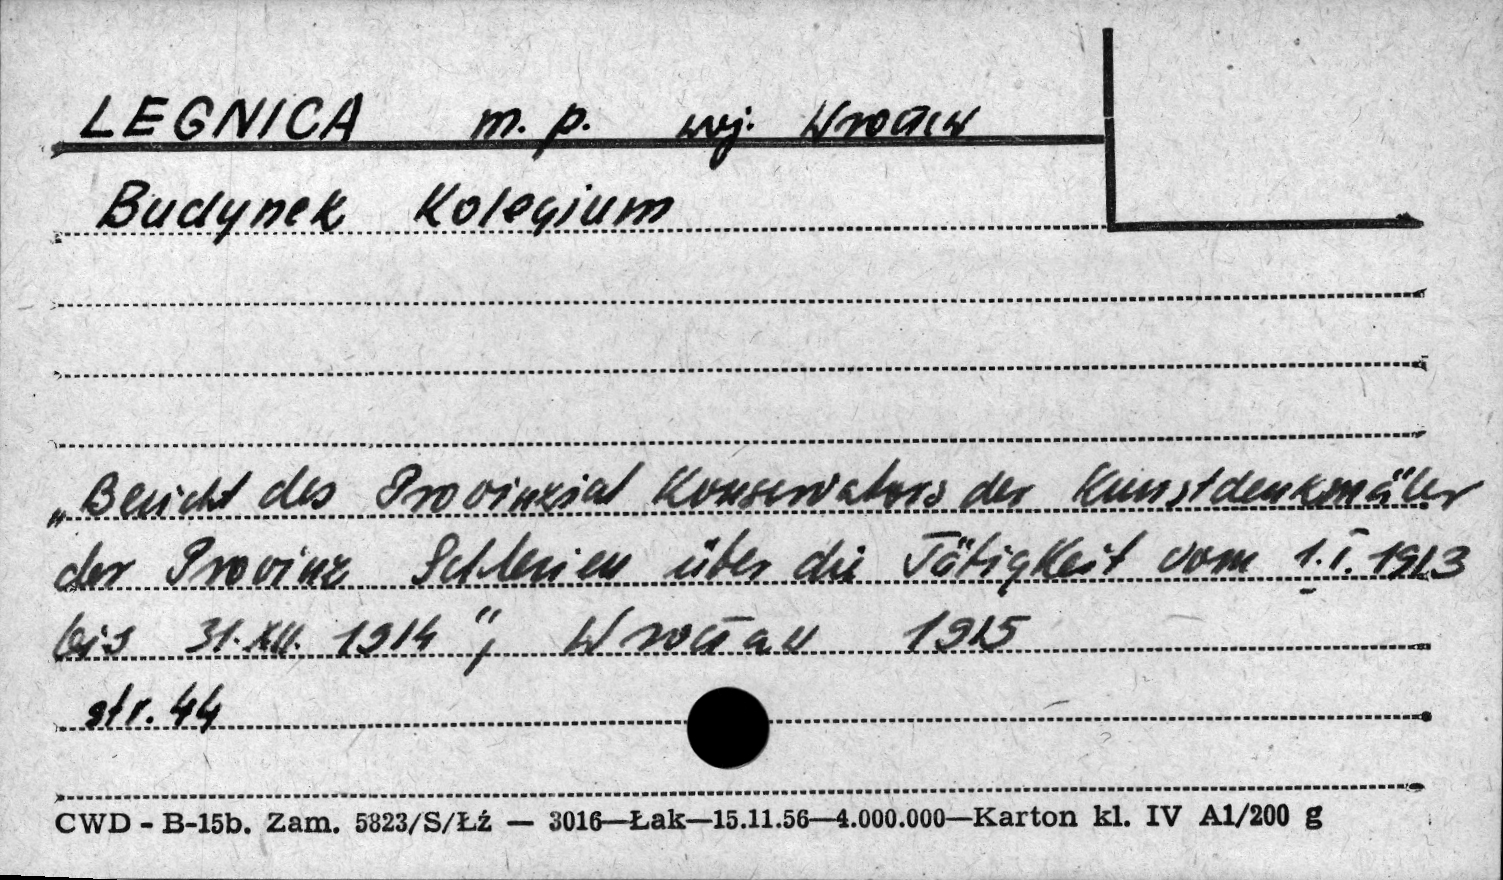 LEGNICA m. p. woj. Wrocław
Budynek Kolegium
„Bericht des Provinzial Konservators der Kunstdenkmäler
der Provinz Schlesien über die Tätigkeit vom 1.I.1913
bis 31.XII.1914", Wrocław 1915
str. 44
CWD - B-15b. Zam. 5823/S/Łź — 3016—Łak—15.11.56—4.000.000—Karton kl. IV A1/200 g